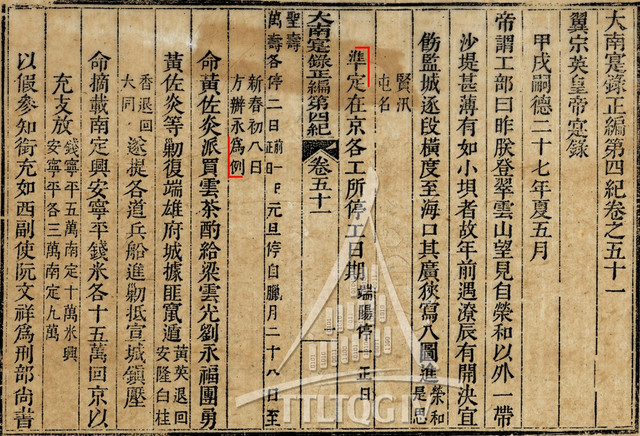 大南寔錄正編第四紀卷之五十一
翼宗英皇帝寔錄
甲戌嗣德二十七年夏五月
帝謂工部曰昨朕登翠雲山望見自榮和以外一帶
沙堤甚薄有如小坝者故年前遇潦辰有開決宜
飭監城逐段橫度至海口其廣狹寫八圖進榮和是思
賢汛屯名
準定在京各工所停工日期端陽停一正日
大南寔錄正編第四紀 卷五十一
聖壽
萬壽各停二日前一日正日元旦停自臘月二十八日至
新春初八日方辦永為例
命黃佐炎派買雲茶酌給梁雲光劉永福團勇
黃佐炎等勦復端雄府城據匪竄遁黃英退回安隆白桂
香退回大同遂提各道兵船進勦抵宣城鎮壓
命摘載南定興安寧平錢米各十五萬回京以
充支放錢寧平五萬南定十萬米興安寧平各三萬南定九萬
以假參知銜充如西副使阮文祥為刑部尚書
TTLTQG1